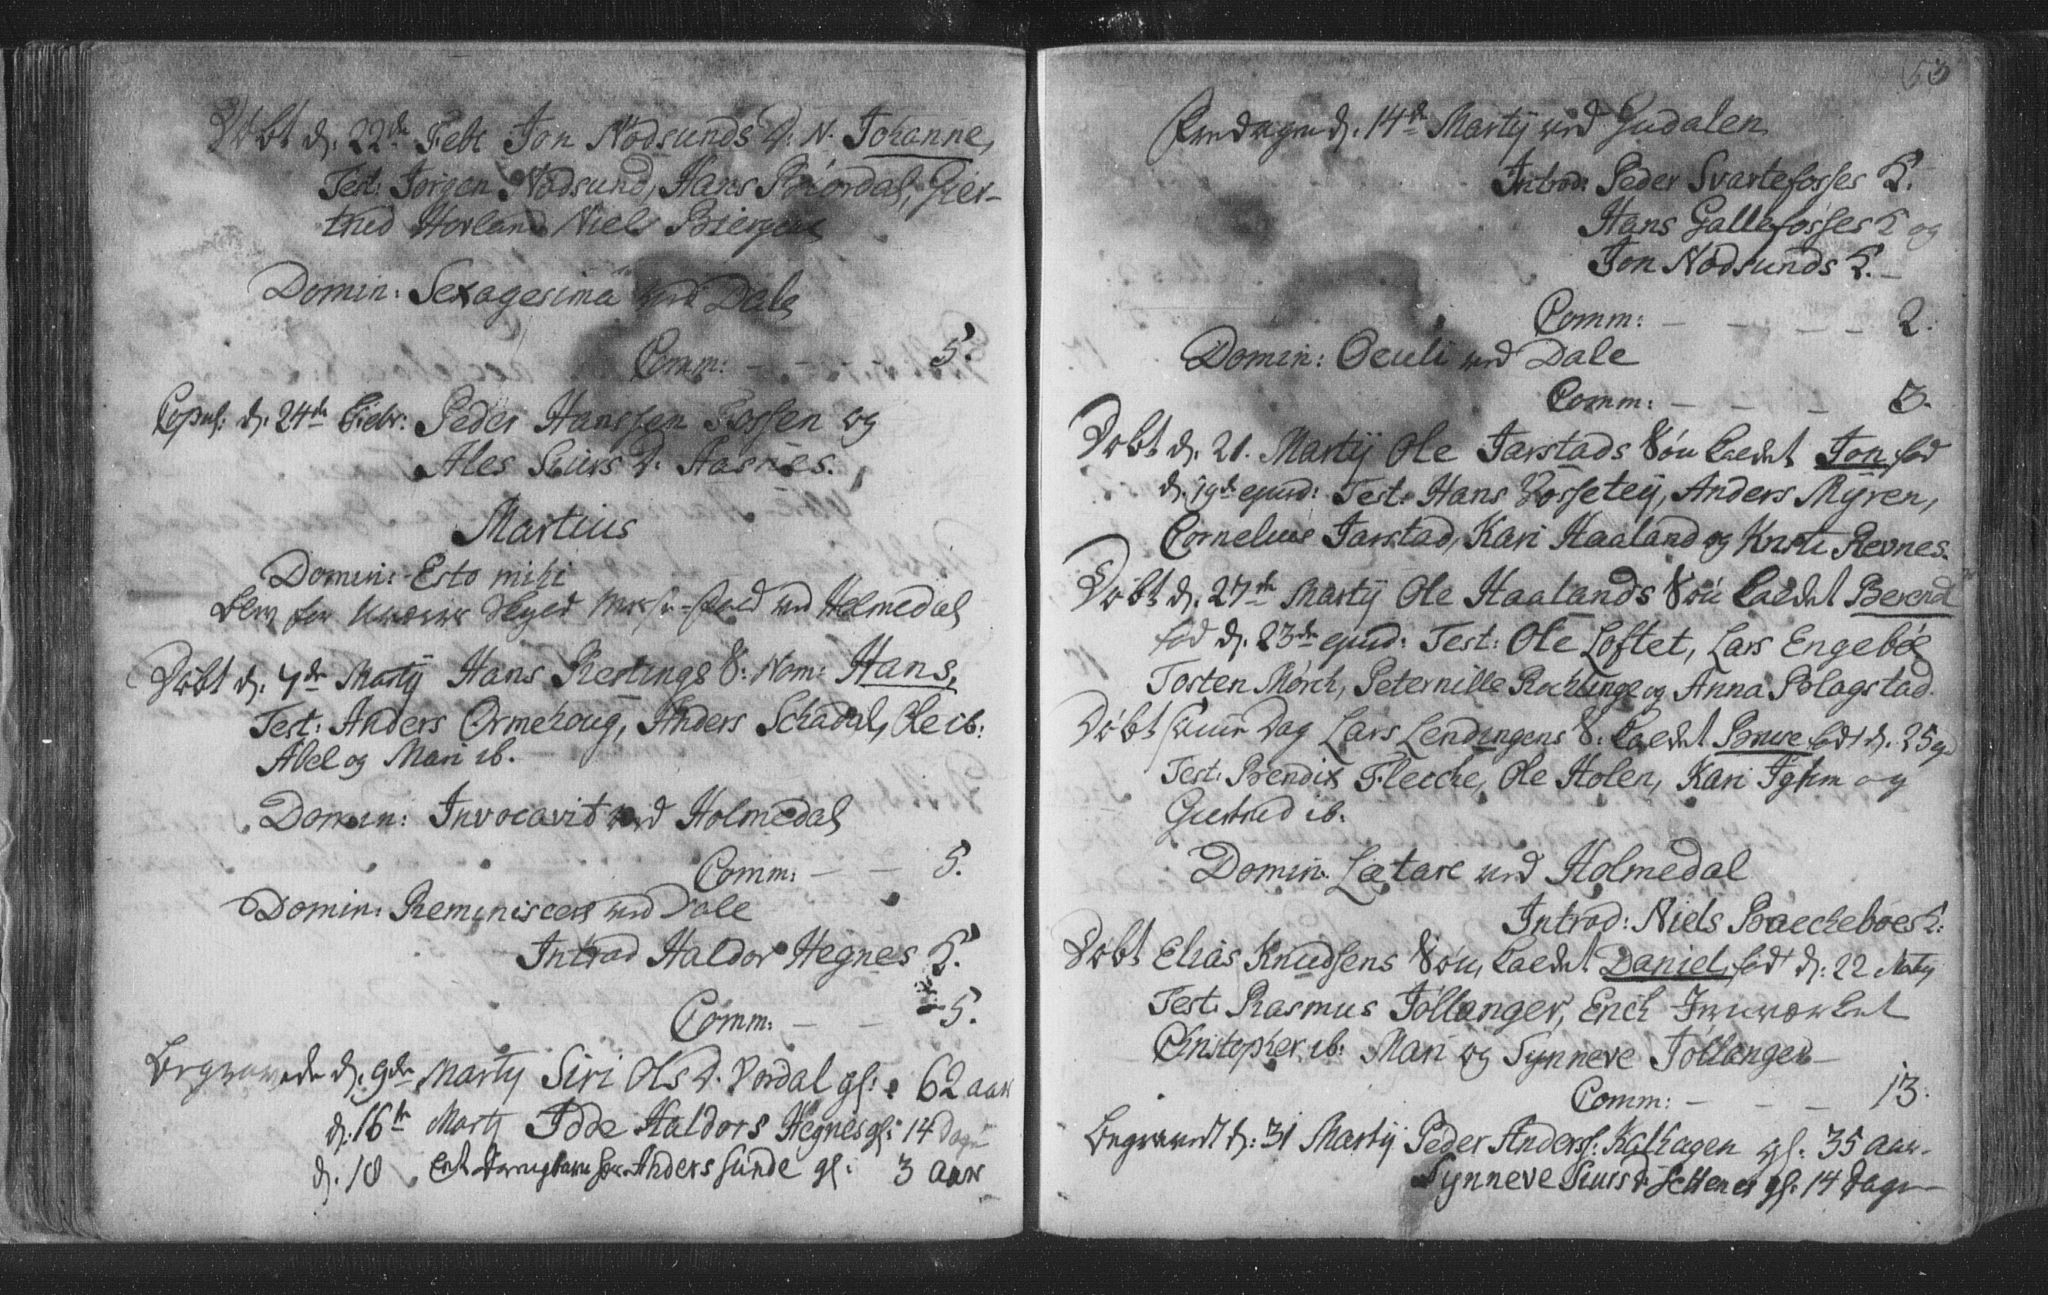 Døbt d. 22de Febr Jon Nødsunds D: N. Johanne,
Test: Jørgen Nødsund, Hans Biordal, Gier-
thrud Horland Niels Biergene
Domin: Sexagesima ved Dale
Comm: — — 5.
Copul: d. 24de Febr: Peder Hanssen Fossen og
Ales Siurs D. Aasnes.
Martius
Domin: Esto mihi
blev for Messe-fald ved Holmedal
Døbt d. 7de Martij Hans Restinge S: Nom: Hans,
Test: Anders Ormehoug, Anders Schadal, Ole ib:
Abel og Mari ib.
Domin: Invocavit ved Holmedal
Comm: — — 5.
Domin: Reminiscere ved Dale
Introd Haldor Hegnes K.
Comm: — — 5.
Begravede d. 9de Martij Siri Ols D. Vordal gl: 62 aar
d. 16de Martij Idde Haldors Hegnes gl: 14 Dage
d. 18 Et Anders Sunde gl: 3 aar
53
Fredagen d. 14de Martij ved Gudalen
Introd: Peder Svartefosses K.
Hans Gallefosses K og
Jon Nødsunds K. —
Comm: — — — — 2.
Domin: Oculi ved Dale
Comm: — — — 3.
Døbt d. 21. Martij Ole Jarstads Søn kaldet Jon fød
d. 19de ejusd: Test: Hans Vossetey, Anders Myren,
Cornelius Jarstad, Kari Haaland og Kristi Revnes.
Døbt d. 27de Martij Ole Haalands Søn kaldet Berend
fød d. 23de ejusd: Test: Ole Loftet, Lars Engebøe
Tosten Mørch, Peternille Rochlinge og Anna Blagstad.
Døbt samme Dag Lars Lendingens S: kaldet fød d. 25
Test: Bendix Fleicke, Ole Holen, Kari og
Giertrud ib.
Domin: Lætare ved Holmedal
Introd: Niels Bræckebøes K:
Døbt Elias Knudsens Søn, kaldet Daniel, fød d: 22 Martij
Test: Rasmus Jollanger, Erich
Christopher ib: Mari og Synneve Jollanger
Comm: — — — 13.
Begravet d: 31 Martij Peder Anderss: Kalhagen gl: 35 aar.
Synneve Siurs D: gl: 14 Dage